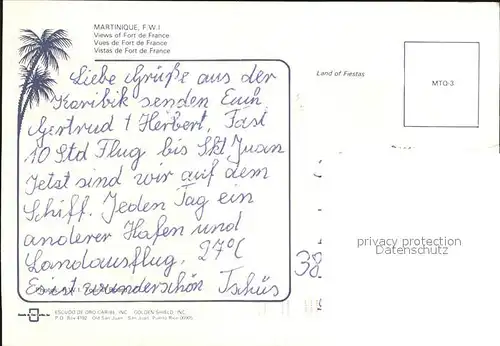 MARTINIQUE, F.W.I
Views of Fort de France
Vues de Fort de France
Vistas de Fort de France
Liebe Grüße aus der
Karibik senden Euch
Gertrud + Herbert. Fast
10 Std Flug bis Skt Juan
Jetzt sind wir auf dem
Schiff. Jeden Tag ein
anderer Hafen und
Landausflug. 27°C
Es ist wunderschön Tschüs
Land of Fiestas
MTQ-3
privacy protection
Datenschutz
38
ESCUDO DE ORO CARIBE, INC. GOLDEN SHIELD, INC.
P.O. Box 4192 Old San Juan San Juan, Puerto Rico 00905